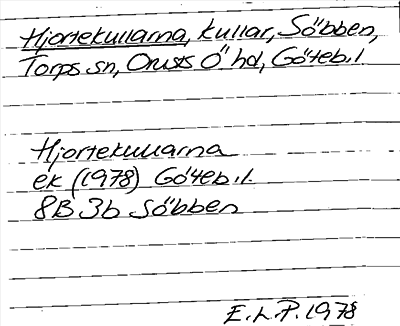 Hjortekullarna, kullar, Söbben,
Torps sn, Orusts Ö hd, Göteb.l.
Hjortekullarna
ek (1978) Göteb.l.
8B 3b Söbben
E.L.P. 1978